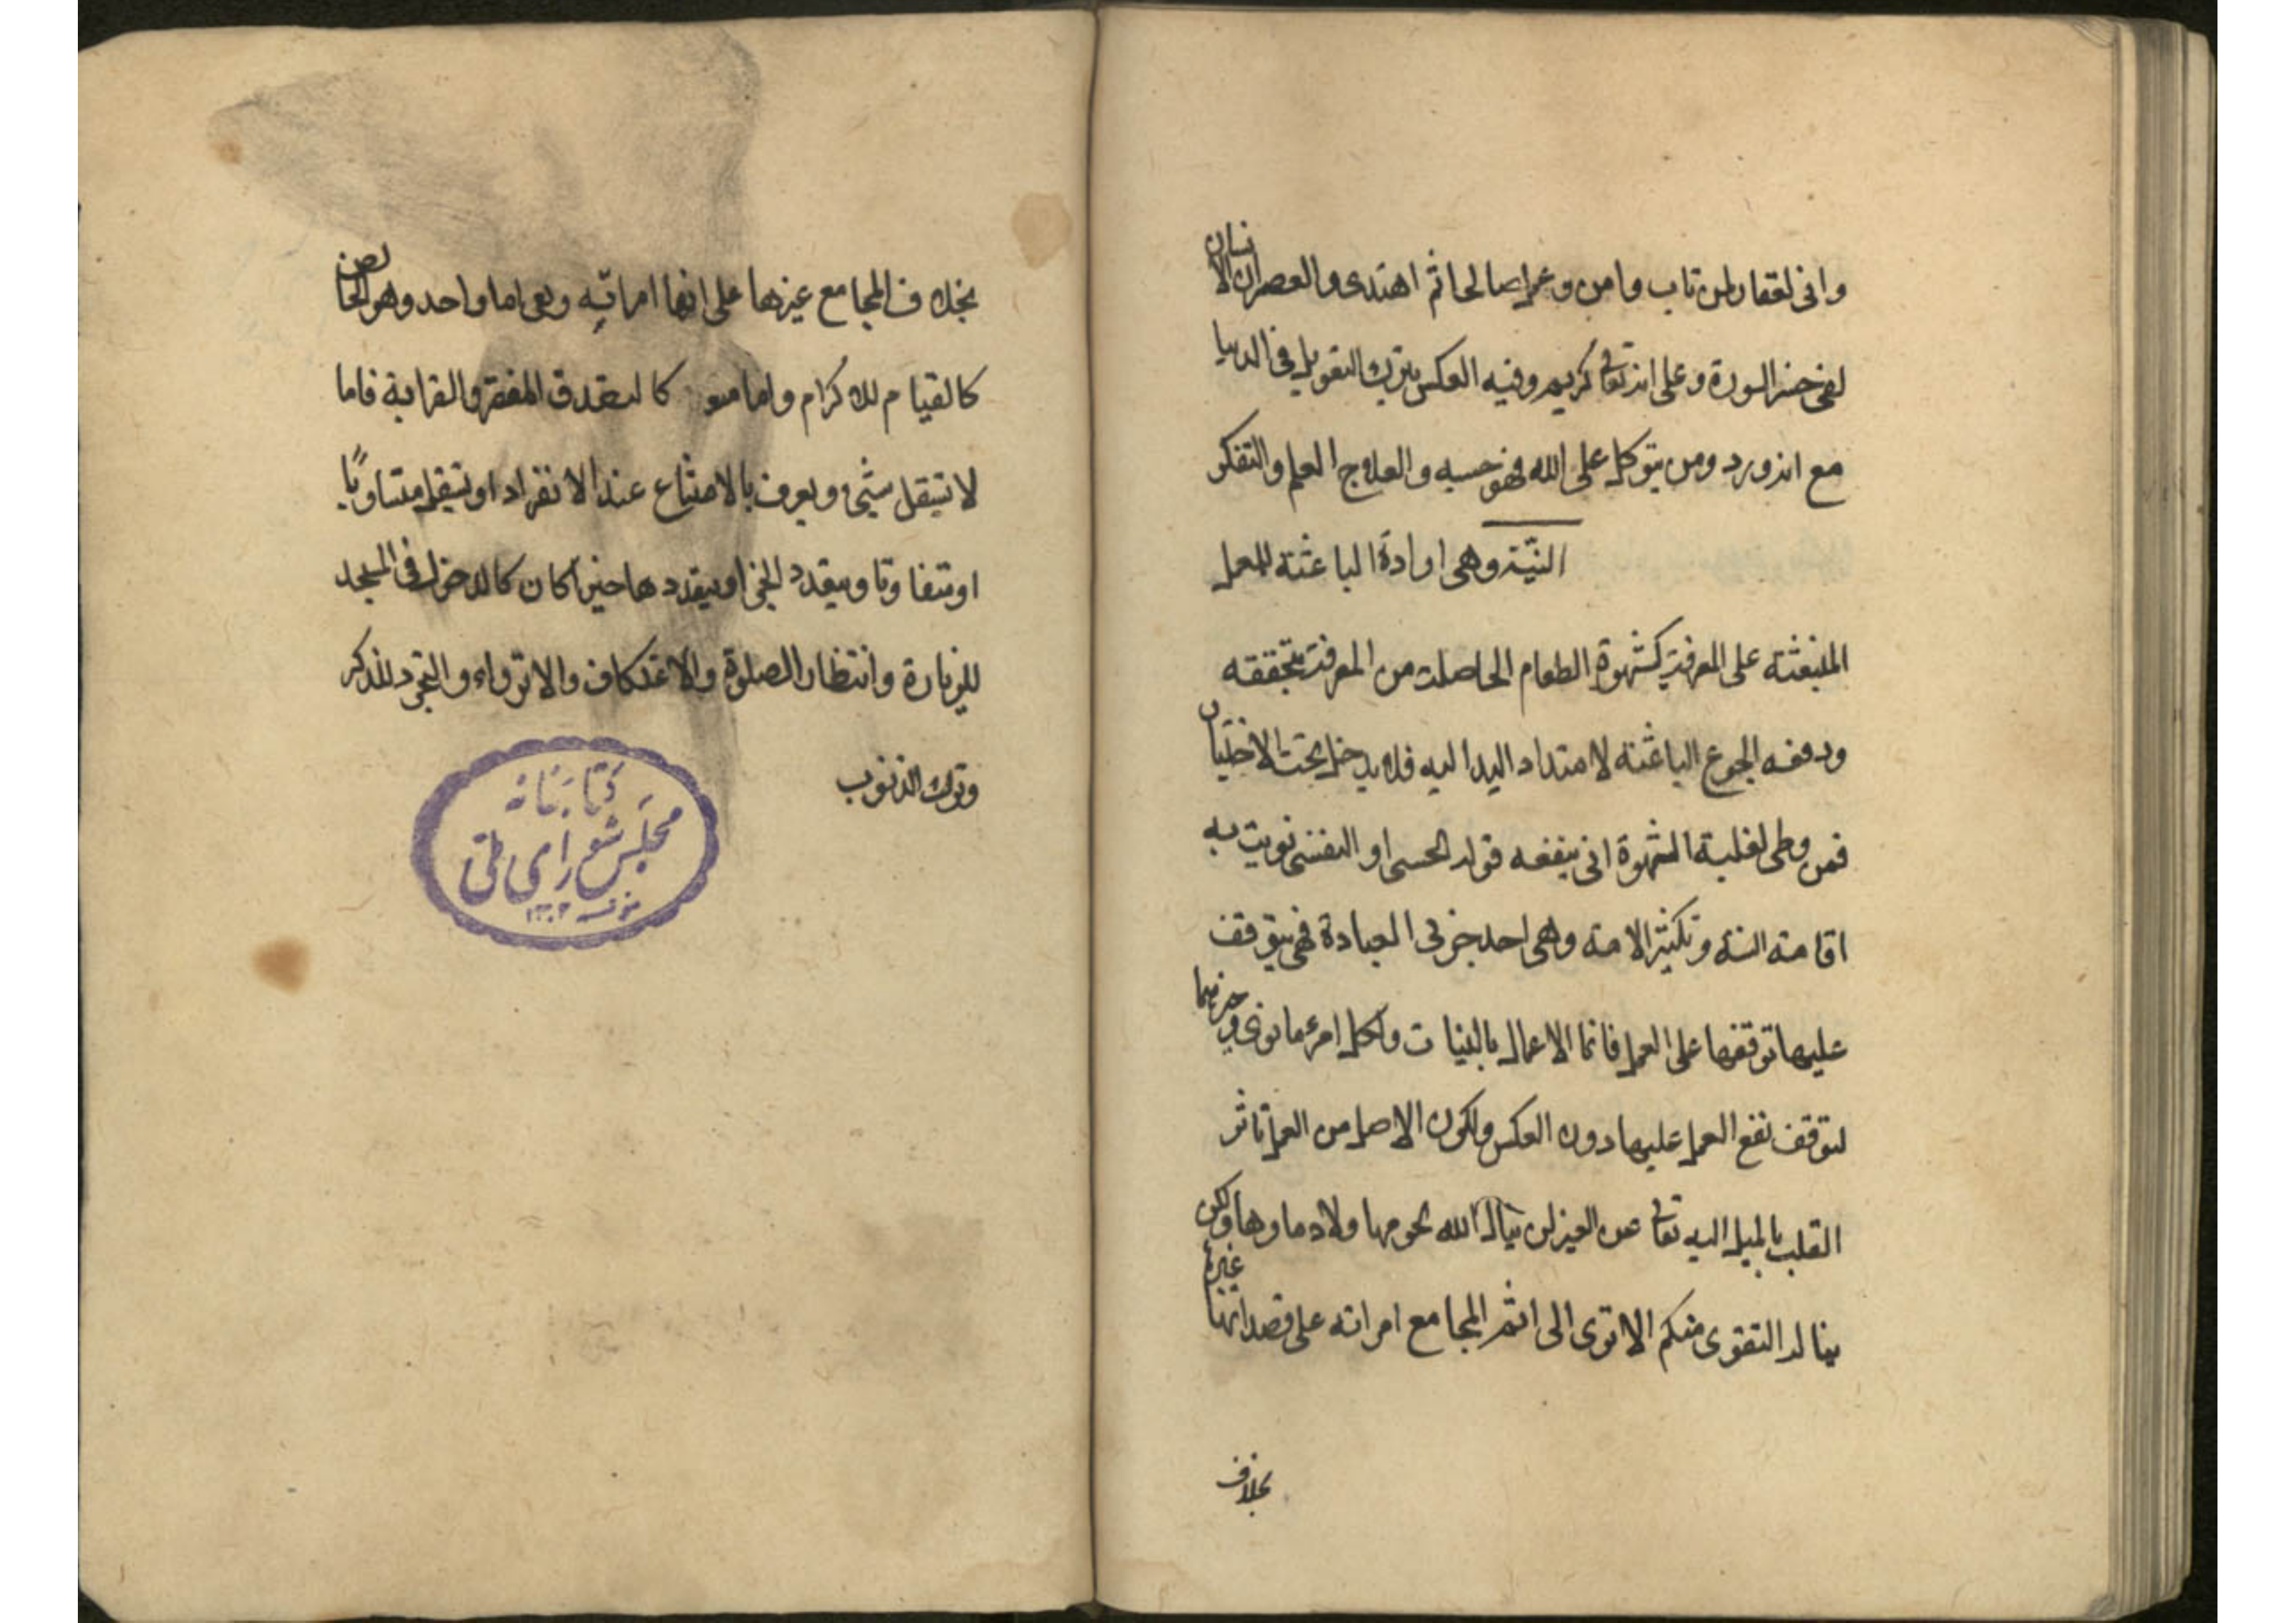 وانى لغفار لمن تاب وامن وعمل صالحا ثم اهتدى والعصر ان الانسان
لفى خسر السورة وعلى انه تعالى كريم وفيه العكس بترك التعويل فى الدنيا
مع انه ورد ومن يتوكل على الله فهو حسبه والعلاج العلم والتفكر
النيّة وهى ارادة الباعثة للعمل
المنبعثة على المعرفة كشهوة الطعام الحاصلة من المعرفة بتحققه
ودفعه الجوع الباعثة لامتداد اليد اليه فلا يدخل تحت الاختيار
فمن وطى لغلبة الشهوة انى ينفعه قول الحسى او النفسى نويت به
اقامته السنة وتكثير الامة وهى احد جزئى العبادة فهى يتوقف
عليها توقفها على العمل فانما الاعمال بالنيات ولكل امرء ما نوى وخيرهما
لتوقف نفع العمل عليها دون العكس ولكون الاصل من العمل تاثر
القلب بالميل اليه تعالى عن الغير لن ينال الله لحومها ولا دماوها ولكن
يناله التقوى منكم الا ترى الى اثم المجامع امراته على قصد انها غيرها
بخلاف
بخلاف المجامع غيرها على انها امراته وهى اما واحد وهو الخالص
كالقيام للاكرام واما كالتصدق للفقر والقرابة فاما
لا تستقل شيئ ويعرف بالامتناع عند الانفراد او تستقل متساويا
او متفاوتا ويتعدد الجزا ويتعددها خيرا كان كالدخول فى المسجد
للزيارة وانتظار الصلوة والاعتكاف والانزواء والتجرد للذكر
وترك الذنوب
كتابخانه
مجلس شوراى ملى